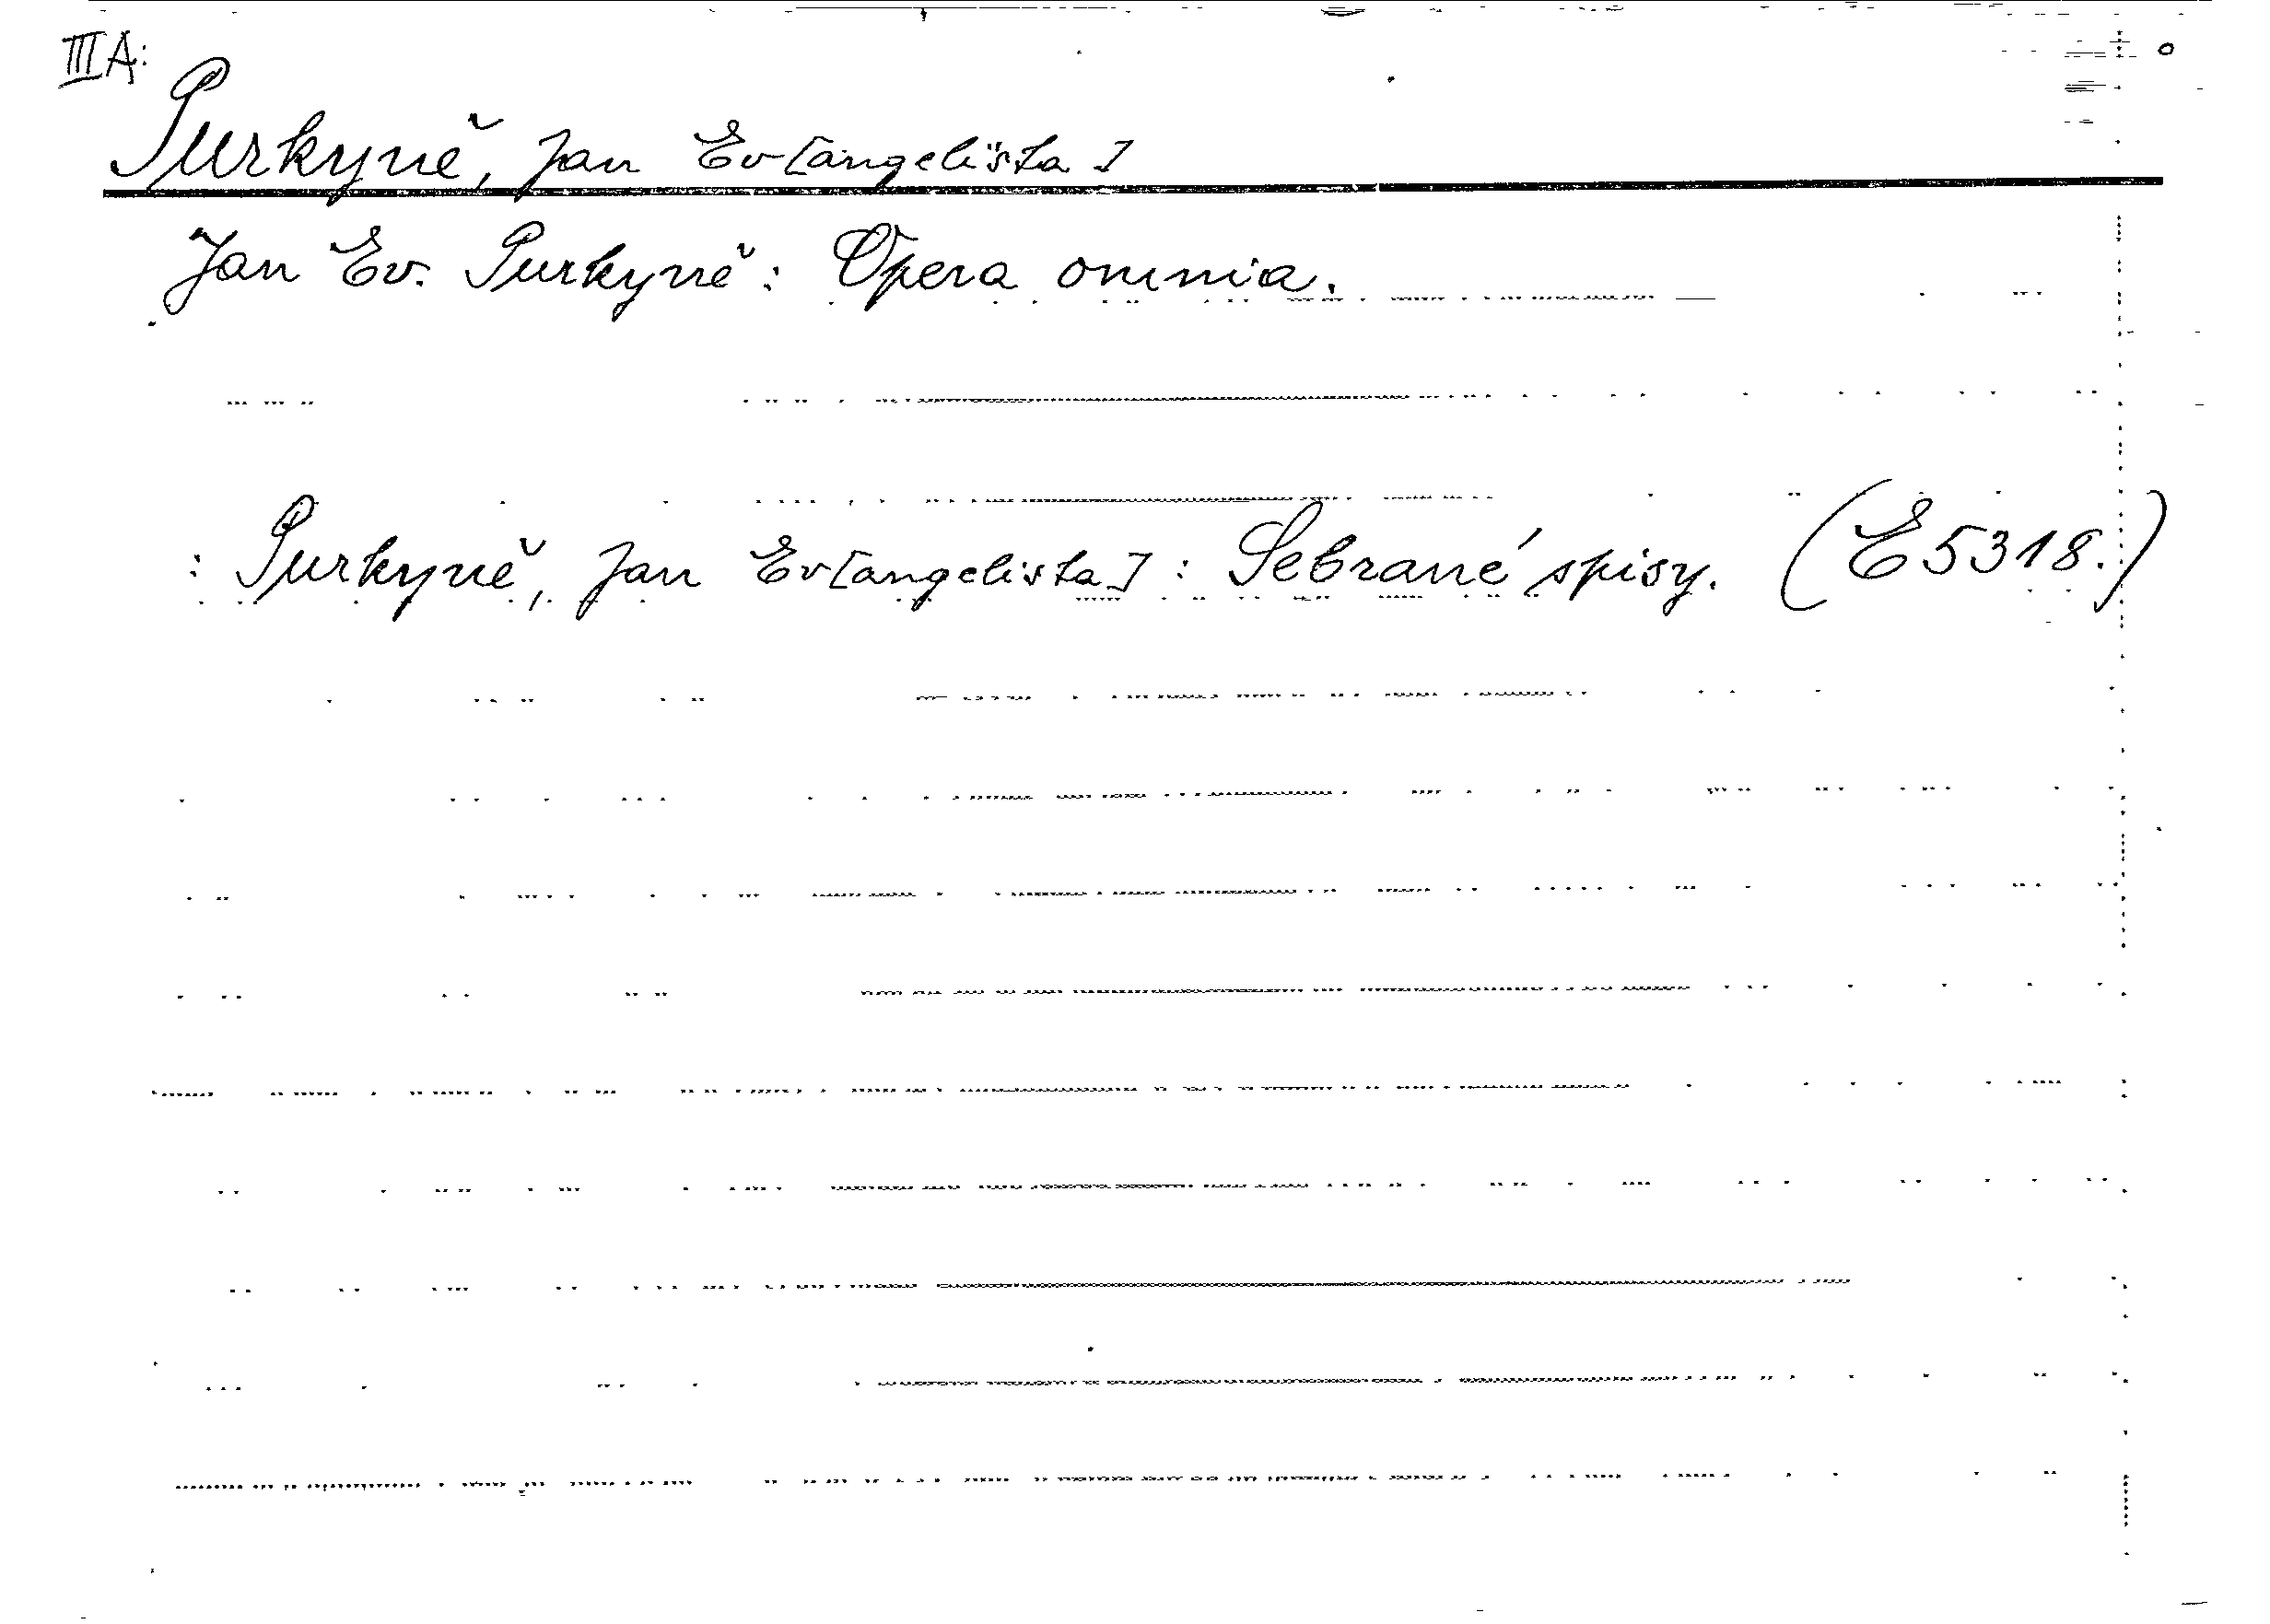 III A:
Purkyně, Jan Ev[angelista]
Jan Ev. Purkyně: Opera omnia.
: Purkyně, Jan Ev[angelista]: Sebrané spisy. (E 5318.)